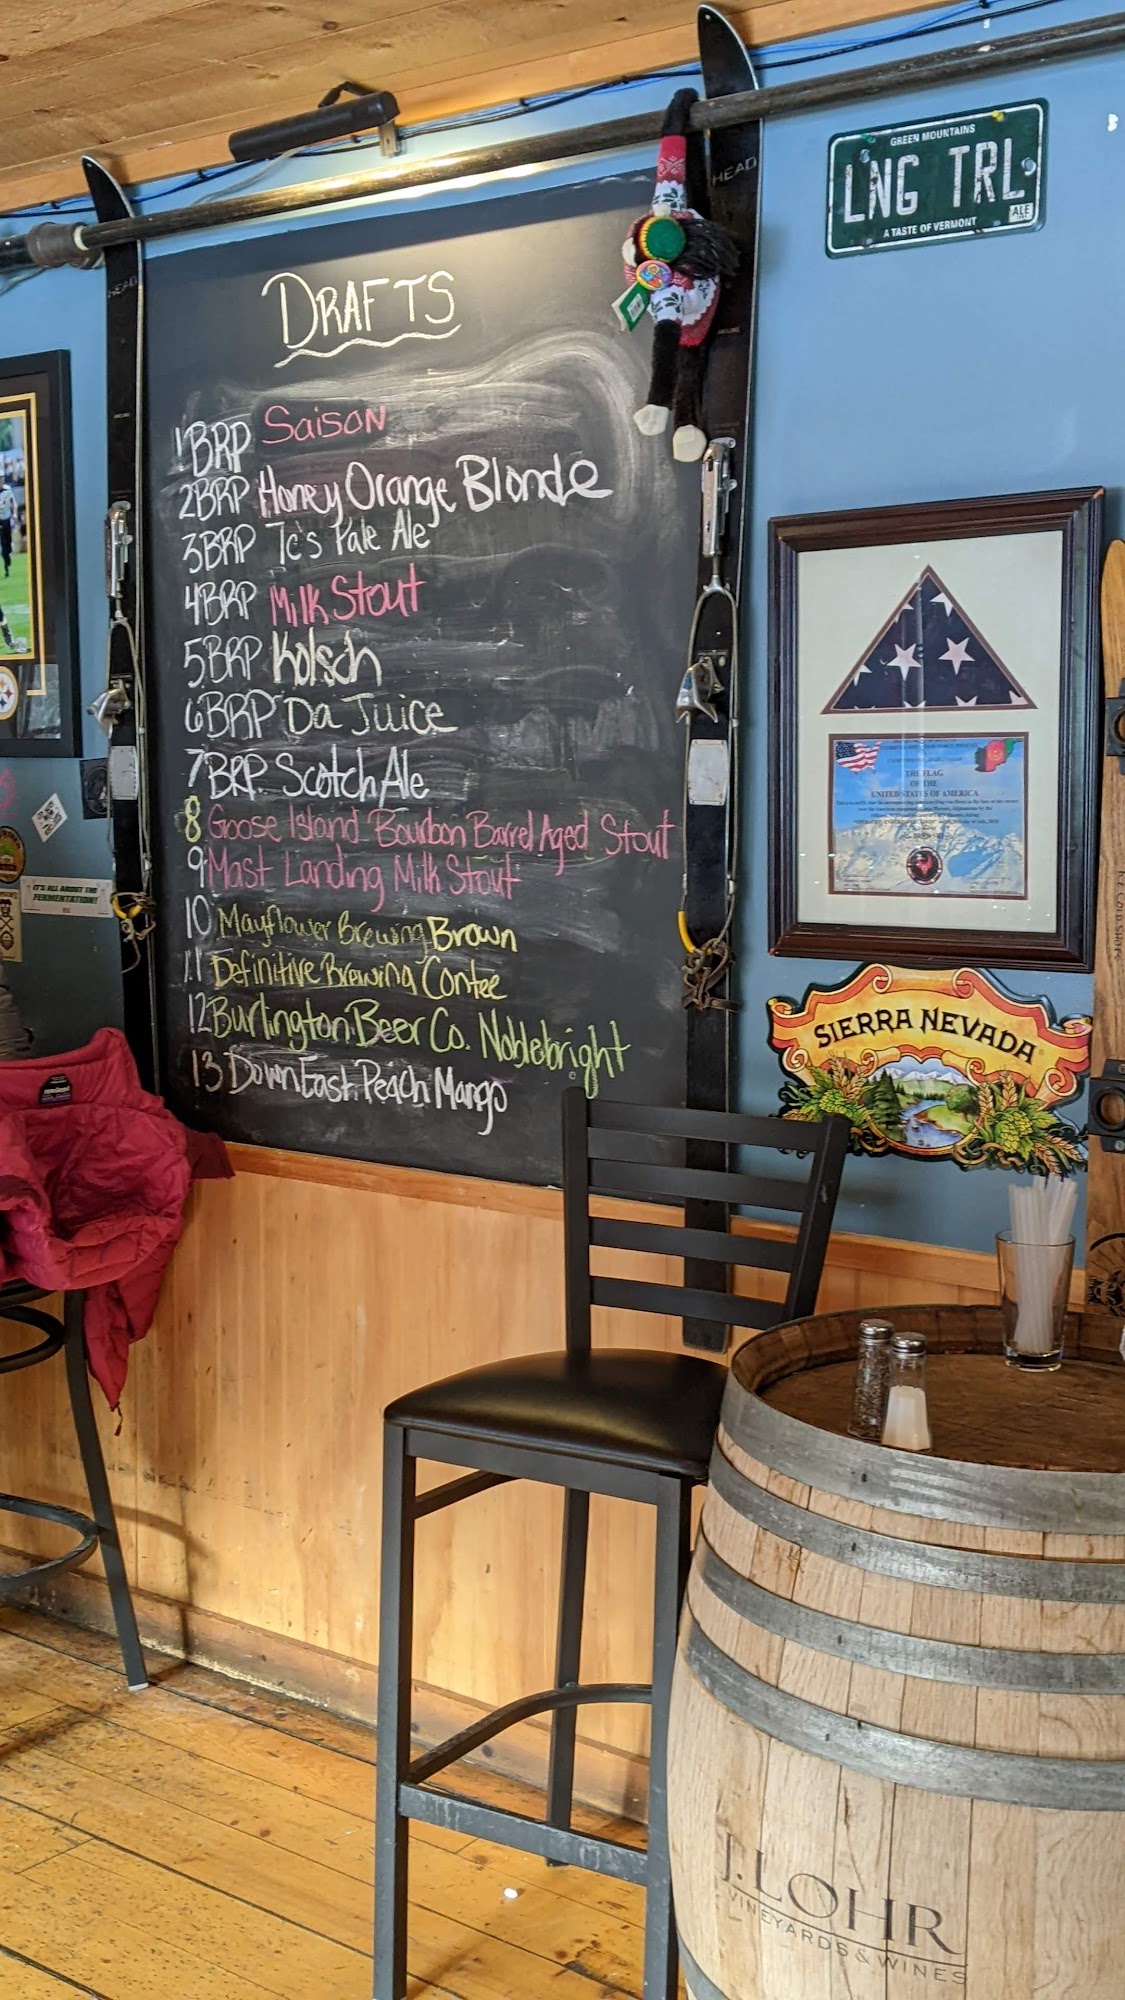 GREEN MOUNTAINS
LNG TRL
ALE
A TASTE OF VERMONT
HEAD
HEAD
DRAFTS
1 BRP Saison
2 BRP Honey Orange Blonde
3 BRP Tc's Pale Ale
4 BRP Milk Stout
5 BRP Kolsch
6 BRP Da Juice
7 BRP Scotch Ale
8 Goose Island Bourbon Barrel Aged Stout
9 Mast Landing Milk Stout
10 Mayflower Brewing Brown
11 Definitive Brewing Contee
12 Burlington Beer Co. Noblebright
13 Down East Peach Mango
THE FLAG
OF THE
UNITED STATES OF AMERICA
IT'S ALL ABOUT THE
FERMENTATION!
SIERRA NEVADA
J. LOHR
VINEYARDS & WINES